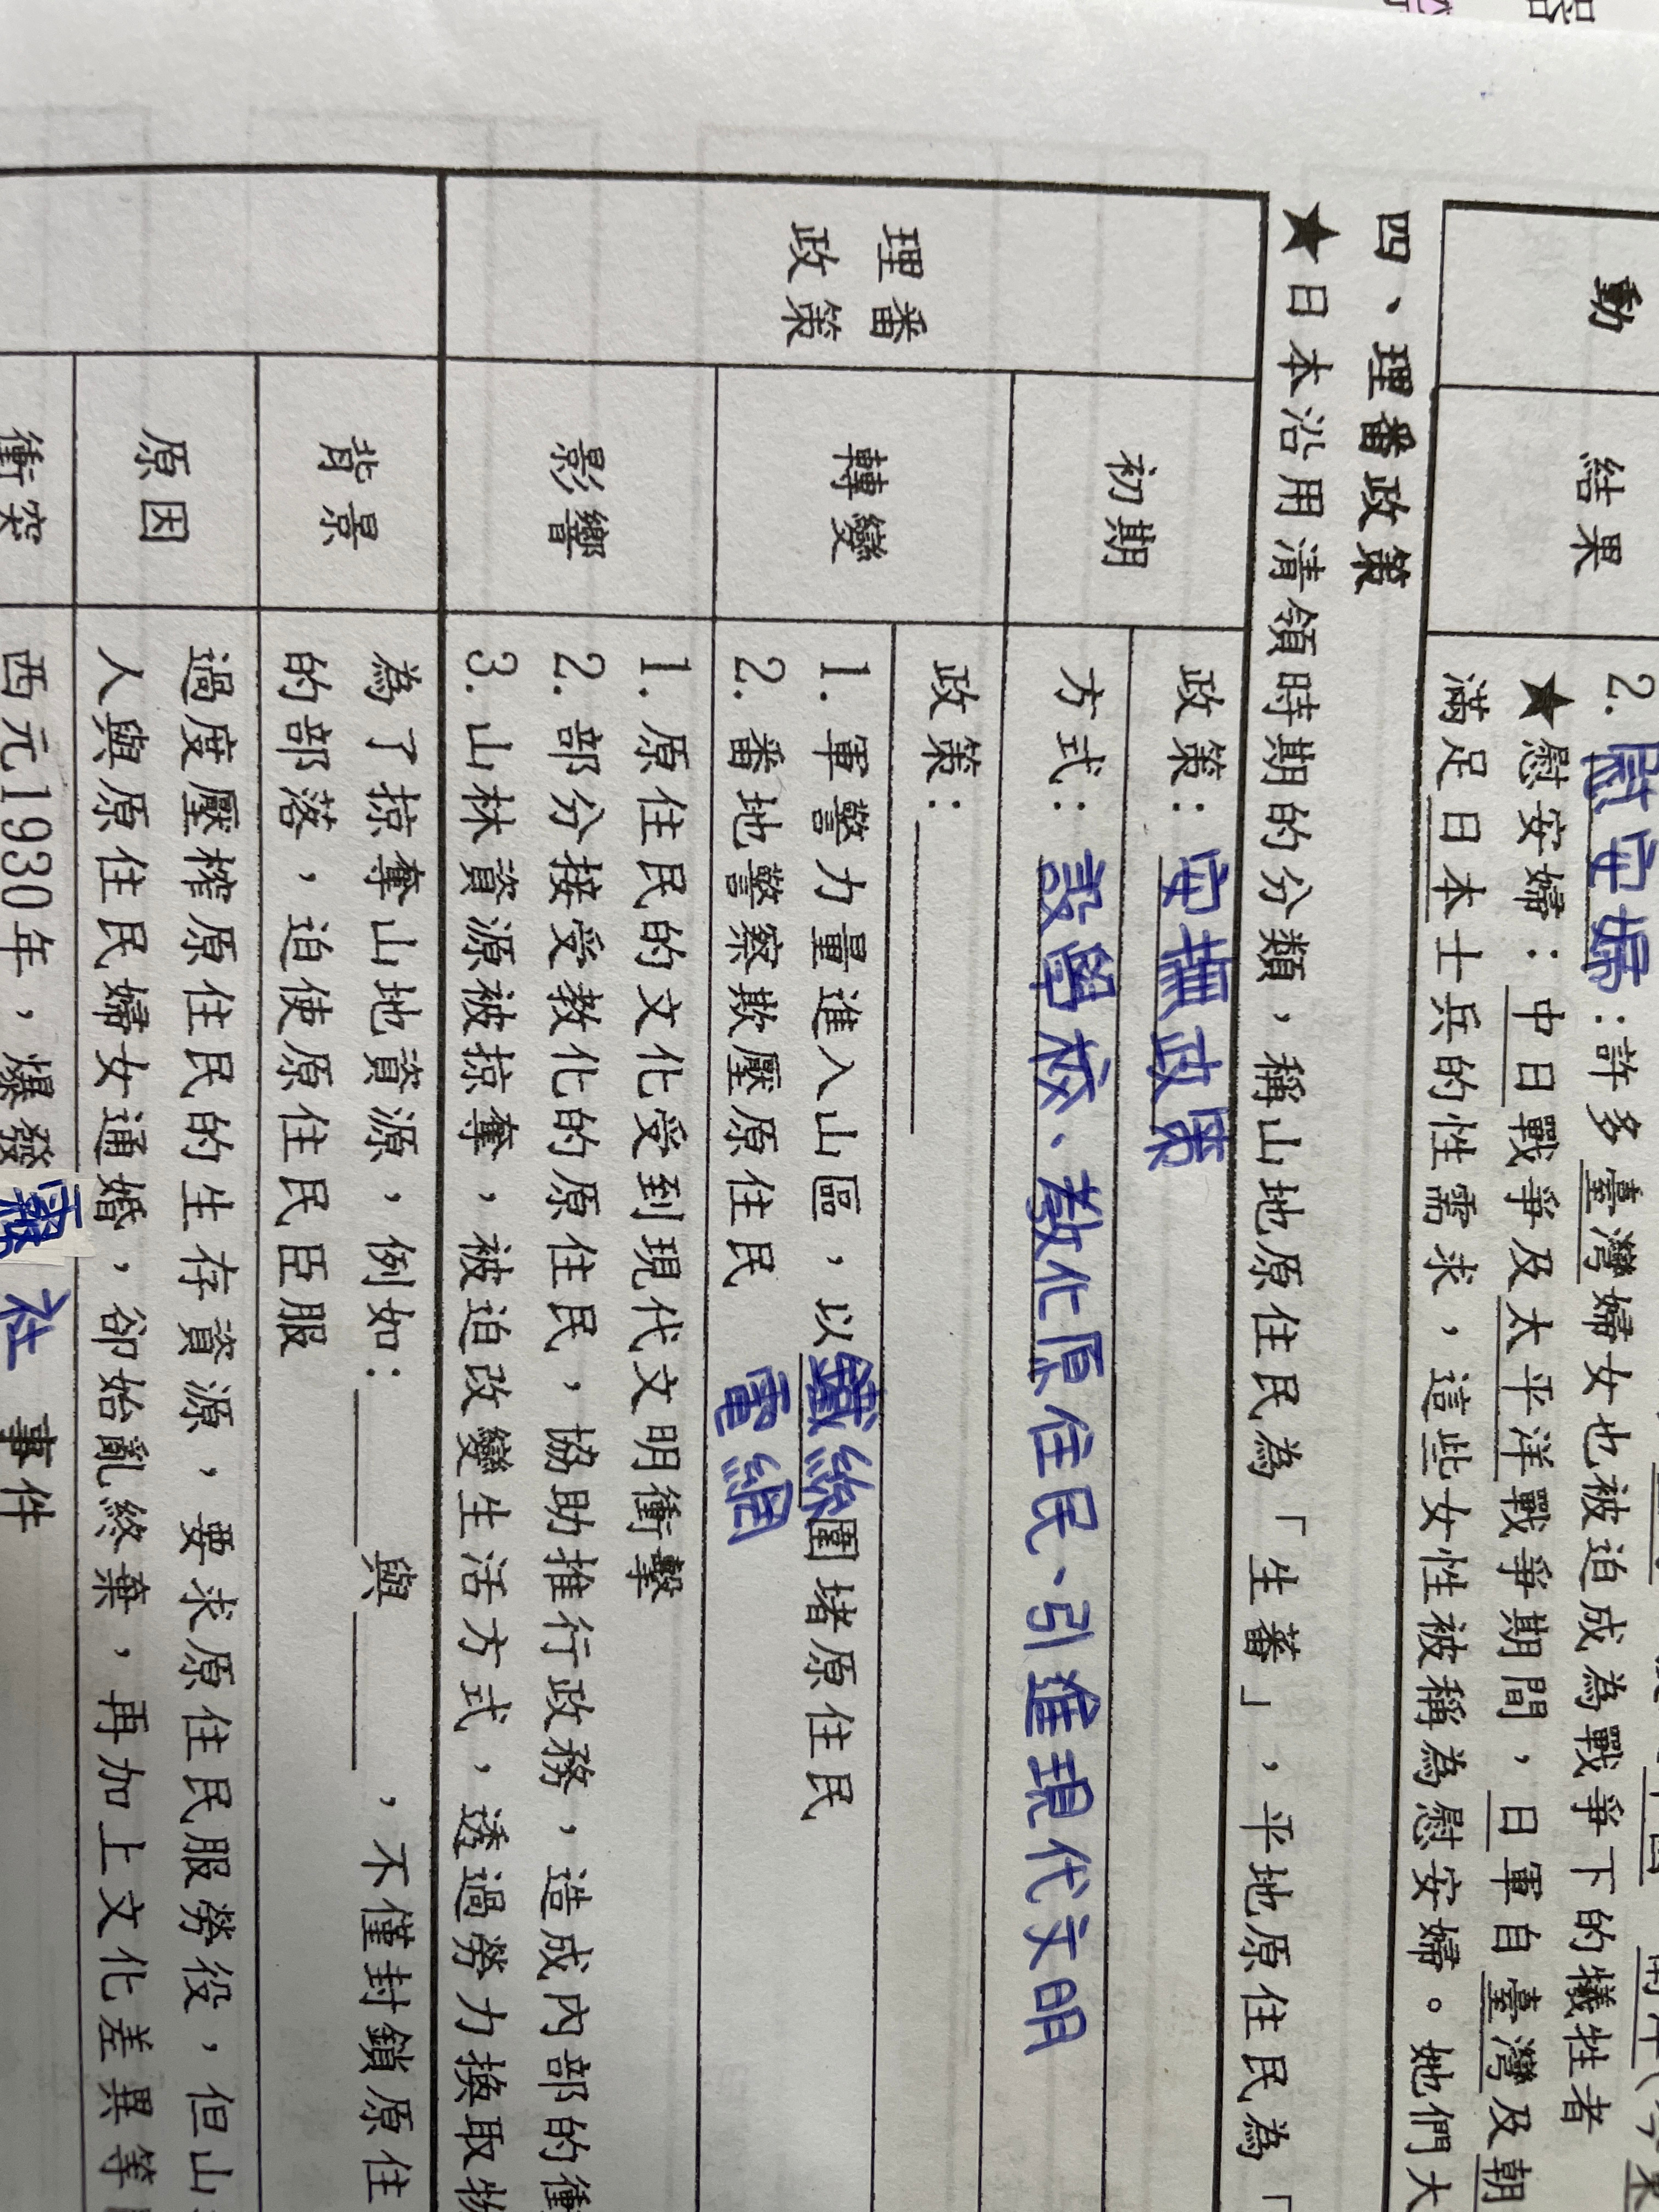 動
結果
2. 慰安婦:許多臺灣婦女也被迫成為戰爭下的犧牲者
★慰安婦:中日戰爭及太平洋戰爭期間,日軍自臺灣及朝
滿足日本士兵的性需求,這些女性被稱為慰安婦。她們大
四、理番政策
★日本沿用清領時期的分類,稱山地原住民為「生蕃」,平地原住民為「
理番政策
初期
政策:安撫政策
方式:設學校、教化原住民、引進現代文明
轉變
政策:
1. 軍警力量進入山區,以鐵絲圍堵原住民
電網
2. 番地警察欺壓原住民
影響
1. 原住民的文化受到現代文明衝擊
2. 部分接受教化的原住民,協助推行政務,造成內部的衝
3. 山林資源被掠奪,被迫改變生活方式,透過勞力換取物
背景
為了掠奪山地資源,例如:與,不僅封鎖原住
的部落,迫使原住民臣服
原因
過度壓榨原住民的生存資源,要求原住民服勞役,但山
人與原住民婦女通婚,卻始亂終棄,再加上文化差異等
衝突
西元1930年,爆發霧社事件